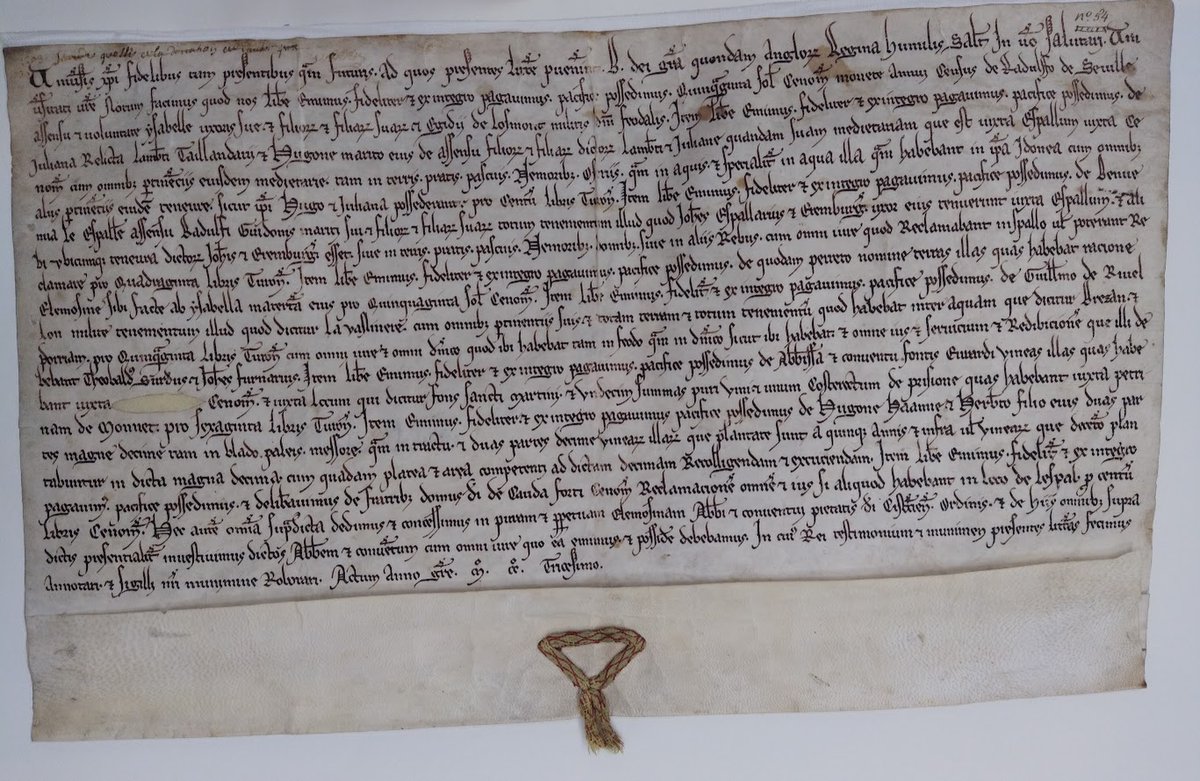 nº 54
Univẽsis xp̃i fidelibus tam presentibus q̃m futuris. ad quos presentes litt̃e puen̄int. B. dei gr̃a quondam anglorꝝ Regina humilis Salt̃ In ũo salutari. Uni
ũsitati ũr̃e Notum facimus quod nos lib̃e Emimus. fideliter & ex integro pagauimus. pacifice possedimus. Quinq̃ginta sol̃ Cenom̃ monete annui Census de Radulfo de Seuille
assensu & uoluntate ysabelle uxoris sue. & filiorꝝ & filiarꝝ suarꝝ & Egidij de militis dñi feodalis. Item lib̃e Emimus. fideliter & ex integro pagauimus. pacifice possedimus. de
Juliana Relicta Lamb̃ti Taillandarij & Hugone marito eius de assensu filiorꝝ & filiarꝝ dictorꝝ Lamb̃ti & Juliane quandam suam medietariam que est iuxta Espallum iuxta Ce
nom̃ cum omnibꝫ p̃tinẽtijs eiusdem medietarie. tam in terris. pratis. pascuis. Nemoribꝫ. q̃m in aquis. & specialit̃ in aqua illa q̃m habebant in ip̃a Idonea cum omnibꝫ
alijs p̃tinẽtijs eiusdẽ teneure. sicut ip̃i Hugo & Juliana possederant. pro Centũ libris Turoñ. Item lib̃e Emimus. fideliter & ex integro pagauimus. pacifice possedimus. de Benue
nuta le Espall̃e assensu Radulfi Guidonis mariti sui & filiorꝝ & filiarꝝ suarꝝ totum tenementum illud quod Joh̃es Espallarius & Eremburg̃ uxor eius tenuerunt iuxta Espallum. & ali
bi ubicũq̃ teneura dictorꝝ Joh̃is & Eremburg̃ esset. siue in terris. pratis. pascuis. Nemoribꝫ. domibꝫ. siue in alijs Rebus. cum omni iure quod Reclamabant in spallo ul̃ poterant Re
clamare pro Quadraginta libris Turoñ. Item lib̃e Emimus. fideliter & ex integro pagauimus. pacifice possedimus. de quodam perreto nomine terras illas quas habebat ratione
Elemosine sibi facte ab ysabella matert̃a eius pro Quinquaginta sol̃ Cenom̃. Item lib̃e Emimus. fidelit̃ & ex integro pagauimus. pacifice possedimus. de Guill̃mo de Riuel
lon milite tenementum illud quod dicitur La Vassinere. cum omnibꝫ p̃tinentijs suis. & totam terram & totum tenementũ quod habebat inter aquam que dicitur Brezan. &
perriam. pro Quinq̃ginta libris Turoñ cum omni iure & omni dñico quod ibi habebat tam in feodo q̃m in dñico sicut ibi habebat. & omne ius & seruicium & Redibicionẽ que illi de
bebant Theobald̃ Surdus & Joh̃es furnarius. Item lib̃e Emimus. fideliter & ex integro pagauimus. pacifice possedimus de Abb̃issa & conuentu fontis Ewardi uineas illas quas habe
bant iuxta Cenom̃. & iuxta locum qui dicitur fons sancti martini. & undecim summas puri uini & unum Costerectum de pensione quas habebant iuxta petri
nam de Monnet. pro sexaginta libris Turoñ. Item Emimus. fideliter. & ex integro pagauimus pacifice possedimus de Hugone & Herb̃to filio eius duas par
tes magne decime tam in blado. paleis. messore. q̃m in tractu. & duas partes decime uinearꝝ illarꝝ que plantate sunt a quinq̃ annis & infra ul̃ uinearꝝ que decet̃o plan
tabuntur in dicta magna decima cum quadam platea & area competenti ad dictam decimam Recolligendam & excuciendam. Item lib̃e Emimus. fidelit̃ & ex integro
pagauim̃. pacifice possedimus. & delib̃auimus de fratribꝫ domus dĩ de Cauda forti Cenom̃ Reclamacionẽ omnẽ & ius si aliquod habebant in loco de Lespal. p̱ centũ
libris Cenom̃. Hec aũt omĩa sup̃dicta dedimus & concessimus in puram & p̱petuam Elemosinam Abb̃i & conuentui pietatis dĩ Cist̃cen̄ Ordinis. & de hijs omnibꝫ supra
dictis presentialit̃ inuestiuimus dictos Abb̃em & conuẽtum cum omni iure quo ea emimus. & possidẽ debebamus. In cui᷒ Rei testimonium & munimen presentes litt̃as fecimus
Annotari. & sigilli nr̃i munimine Roborari. Actum Anno gr̃e. M. CC. Tricesimo.